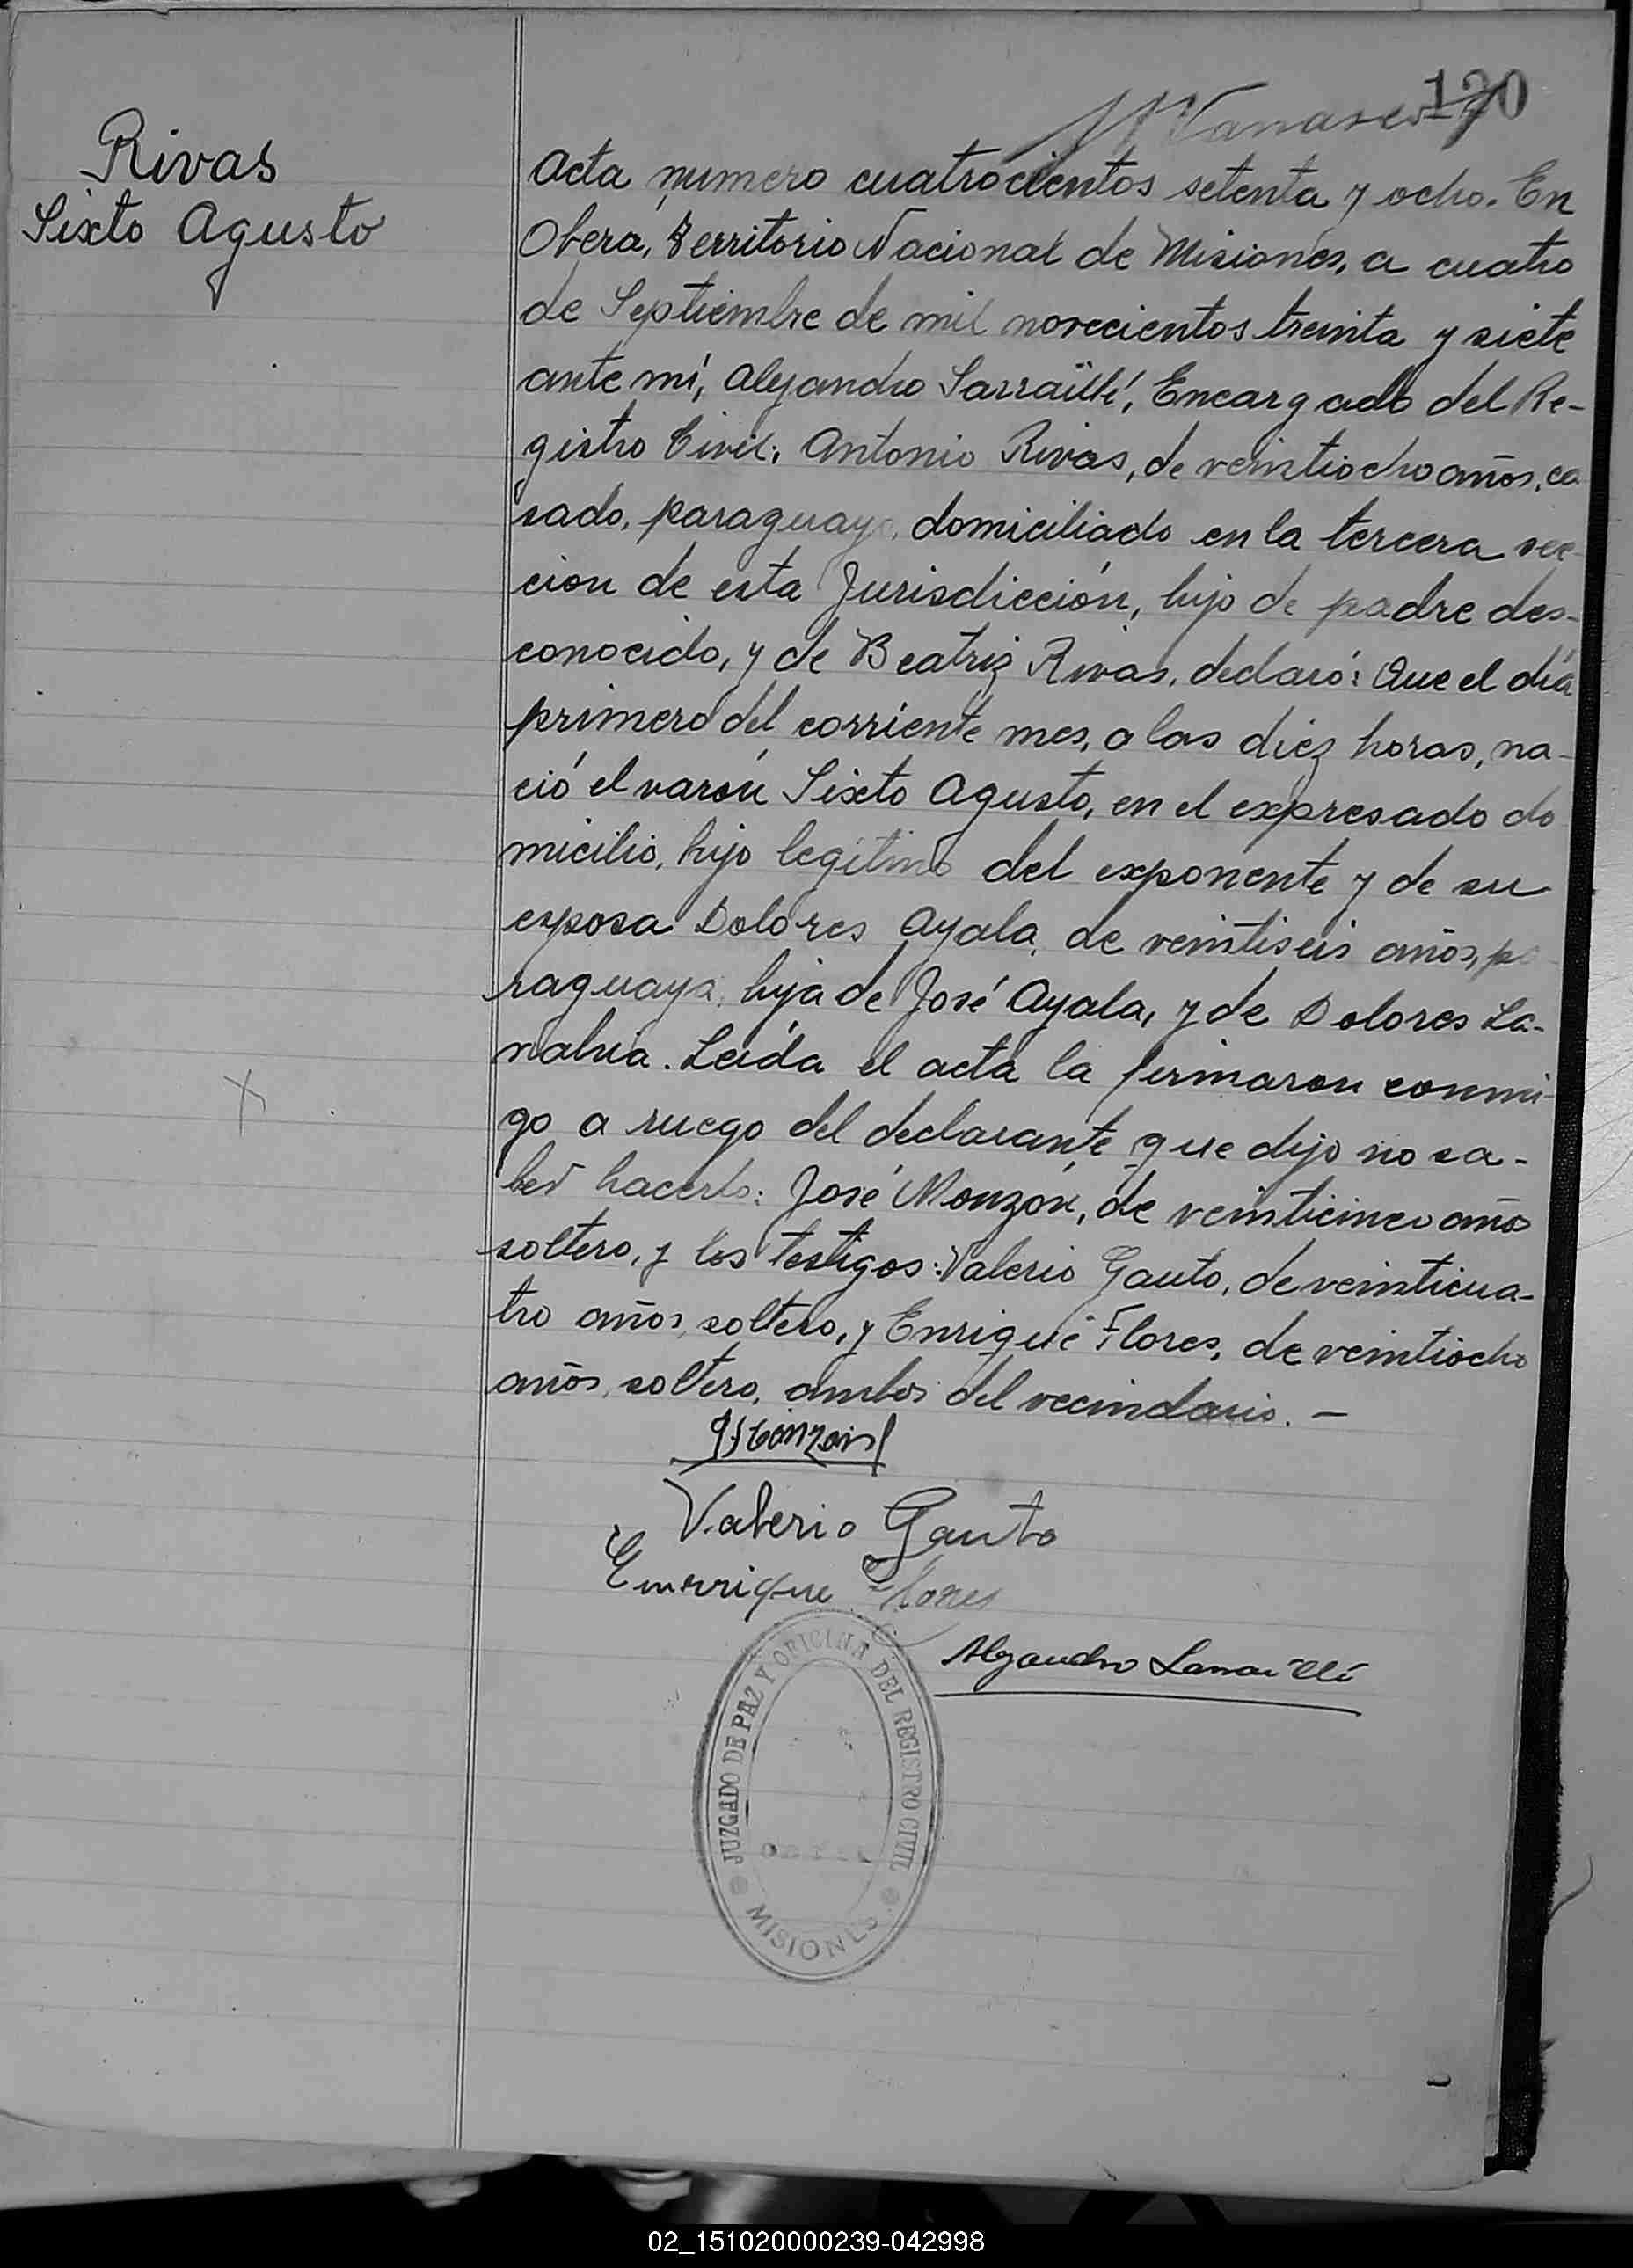 120
Rivas
Sixto Agusto
Acta numero cuatrocientos setenta y ocho. En
Oberá, Territorio Nacional de Misiones, a cuatro
de Septiembre de mil novecientos treinta y siete
ante mí, Alejandro Sarraillé, Encargado del Re-
gistro Civil; Antonio Rivas, de veintiocho años, ca
sado, paraguayo, domiciliado en la tercera sec
cion de esta Jurisdicción, hijo de padre des-
conocido, y de Beatriz Rivas, declaró: Que el día
primero del corriente mes, a las diez horas, na-
ció el varón Sixto Agusto, en el expresado do
micilio, hijo legitimo del exponente y de su
esposa Dolores Ayala, de veintiseis años, pa
raguaya, hija de José Ayala, y de Dolores La-
Leída el acta la firmaron conmi-
go a ruego del declarante que dijo no sa-
ber hacerlo: José Monzón, de veinticinco años
soltero, y los testigos: Valerio Gauto, de veinticua-
tro años, soltero, y Enrique Flores, de veintiocho
años, soltero, ambos del vecindario. —
Valerio Gauto
Emrrique Flores
Alejandro Sarraillé
JUZGADO DE PAZ Y OFICINA DEL REGISTRO CIVIL
MISIONES
02_151020000239-042998